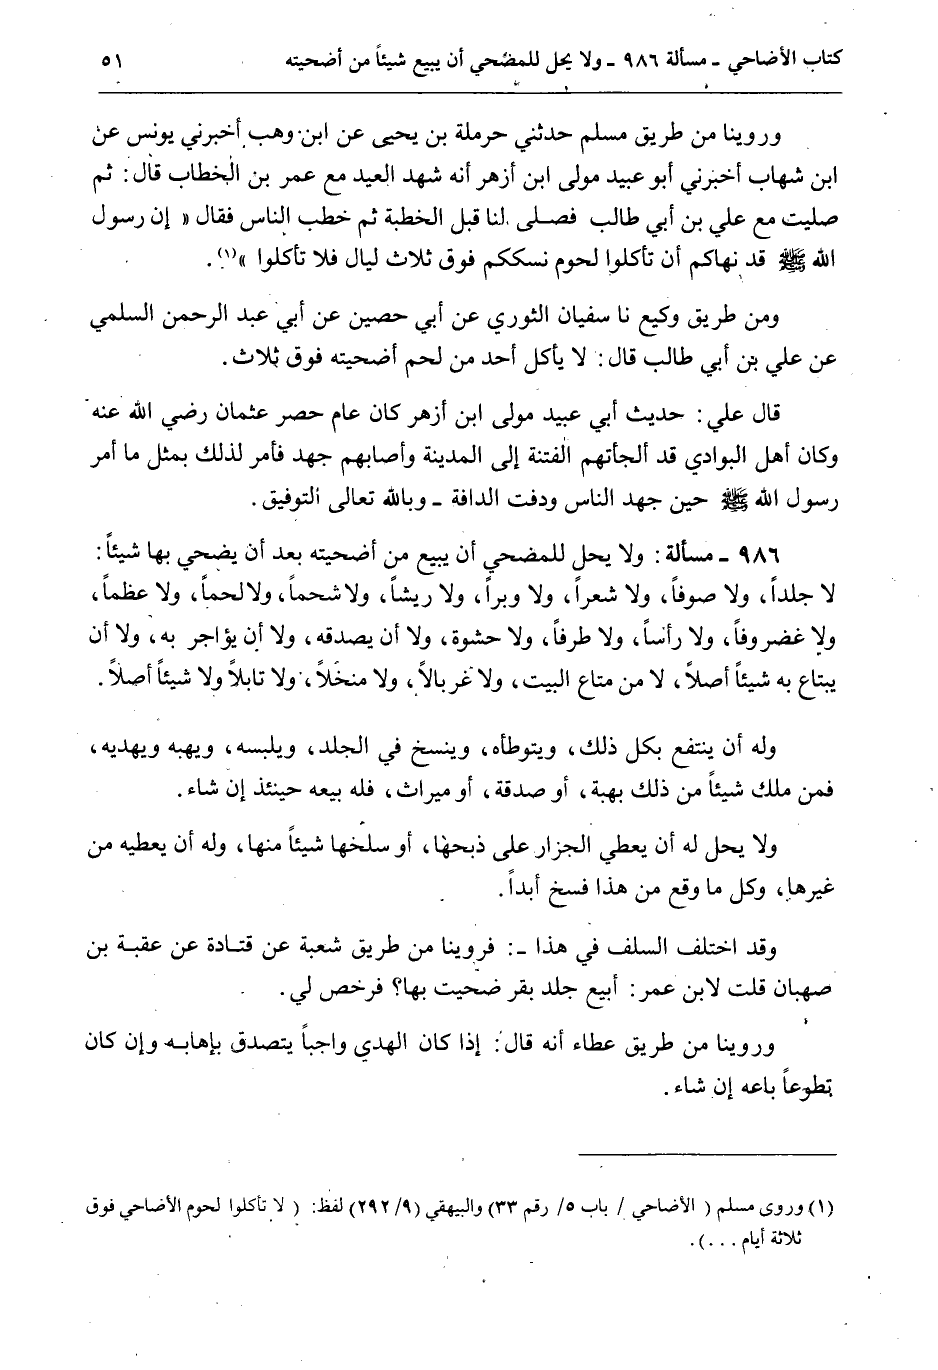 كتاب الأضاحي ـ مسألة ٩٨٦ ـ ولا يحل للمضحي أن يبيع شيئاً من أضحيته ٥١
وروينا من طريق مسلم حدثني حرملة بن يحيى عن ابن وهب أخبرني يونس عن
ابن شهاب أخبرني أبو عبيد مولى ابن أزهر أنه شهد العيد مع عمر بن الخطاب قال: ثم
صليت مع علي بن أبي طالب فصلى لنا قبل الخطبة ثم خطب الناس فقال « إن رسول
الله ﷺ قد نهاكم أن تأكلوا لحوم نسككم فوق ثلاث ليال فلا تأكلوا »(١).
ومن طريق وكيع نا سفيان الثوري عن أبي حصين عن أبي عبد الرحمن السلمي
عن علي بن أبي طالب قال: لا يأكل أحد من لحم أضحيته فوق ثلاث.
قال علي: حديث أبي عبيد مولى ابن أزهر كان عام حصر عثمان رضي الله عنه
وكان أهل البوادي قد ألجأتهم الفتنة إلى المدينة وأصابهم جهد فأمر لذلك بمثل ما أمر
رسول الله ﷺ حين جهد الناس ودفت الدافة ـ وبالله تعالى التوفيق.
٩٨٦ ـ مسألة: ولا يحل للمضحي أن يبيع من أضحيته بعد أن يضحي بها شيئاً:
لا جلداً، ولا صوفاً، ولا شعراً، ولا وبراً، ولا ريشاً، ولا شحماً، ولا لحماً، ولا عظماً،
ولا غضروفاً، ولا رأساً، ولا طرفاً، ولا حشوة، ولا أن يصدقه، ولا أن يؤاجر به، ولا أن
يبتاع به شيئاً أصلاً، لا من متاع البيت، ولا غربالاً، ولا منخلاً، ولا تابلاً ولا شيئاً أصلاً.
وله أن ينتفع بكل ذلك، ويتوطأه، وينسخ في الجلد، ويلبسه، ويهبه ويهديه،
فمن ملك شيئاً من ذلك بهبة، أو صدقة، أو ميراث، فله بيعه حينئذ إن شاء.
ولا يحل له أن يعطي الجزار على ذبحها، أو سلخها شيئاً منها، وله أن يعطيه من
غيرها، وكل ما وقع من هذا فسخ أبداً.
وقد اختلف السلف في هذا ـ: فروينا من طريق شعبة عن قتادة عن عقبة بن
صهبان قلت لابن عمر: أبيع جلد بقر ضحيت بها؟ فرخص لي.
وروينا من طريق عطاء أنه قال: إذا كان الهدي واجباً يتصدق بإهابه وإن كان
تطوعاً باعه إن شاء.
(١) وروى مسلم ( الأضاحي / باب ٥/ رقم ٣٣) والبيهقي (٩/ ٢٩٢) لفظ: ( لا تأكلوا لحوم الأضاحي فوق
ثلاثة أيام . . .).